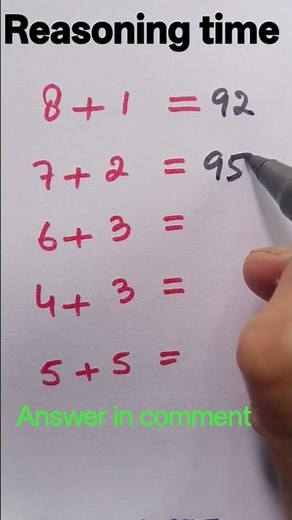 Reasoning time
8 + 1 = 92
7 + 2 = 95
6 + 3 =
4 + 3 =
5 + 5 =
Answer in comment